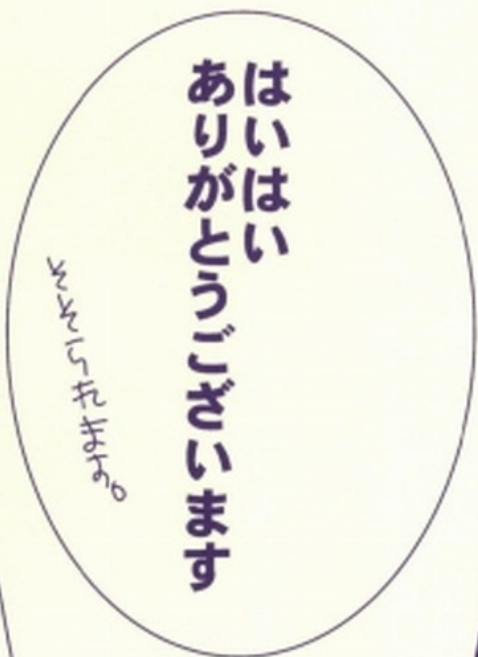 はいはい
ありがとうございます
そそられます。